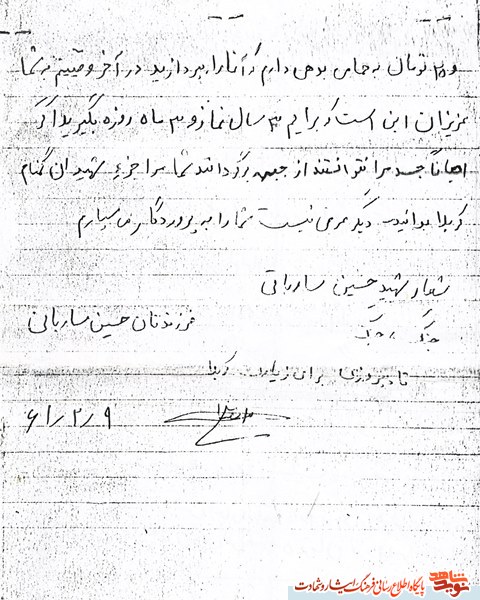 و ۲۵ تومان به حامی بدهی دارم که آنرا بپردازید در آخر وصیتم به شما
عزیزان این است که برایم ۳ سال نماز و ۳ ماه روزه بگیرید اگر
احیاناً جسد مرا نتوانستند از جبهه برگردانند شما مرا جزء شهیدان گمنام
کربلا بدانید دیگر عرضی نیست شما را به پروردگار می سپارم
شعار شهید حسین ساربانی
فرزندتان حسین ساربانی
جنگ جنگ
تا پیروزی برای زیارت کربلا
۶۱/۲/۹
نوید شاهد پایگاه اطلاع رسانی فرهنگ ایثار و شهادت